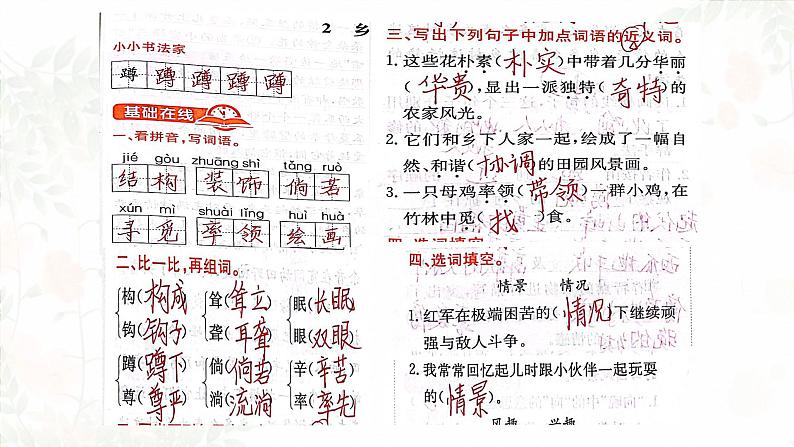 2 乡
小小书法家
蹲 蹲 蹲 蹲 蹲
基础在线
一、看拼音，写词语。
jié gòu zhuāng shì tǎng ruò
结构 装饰 倘若
xún mì shuài lǐng huì huà
寻觅 率领 绘画
二、比一比，再组词。
构(构成 耸(耸立) 眠(长眠
钩(钩子) 聋(耳聋 眼(双眼
蹲(蹲下 倘(倘若 辛(辛苦
尊(尊严 淌(流淌 率(率先
三、写出下列句子中加点词语的近义词。
1. 这些花朴素(朴实)中带着几分华丽
(华贵),显出一派独特(奇特)的
农家风光。
2. 它们和乡下人家一起,绘成了一幅自
然、和谐(协调)的田园风景画。
3. 一只母鸡率领(带领)一群小鸡,在
竹林中觅(找)食。
四、选词填空。
情景 情况
1. 红军在极端困苦的(情况)下继续顽
强与敌人斗争。
2. 我常常回忆起儿时跟小伙伴一起玩耍
的(情景)。
风趣 兴趣